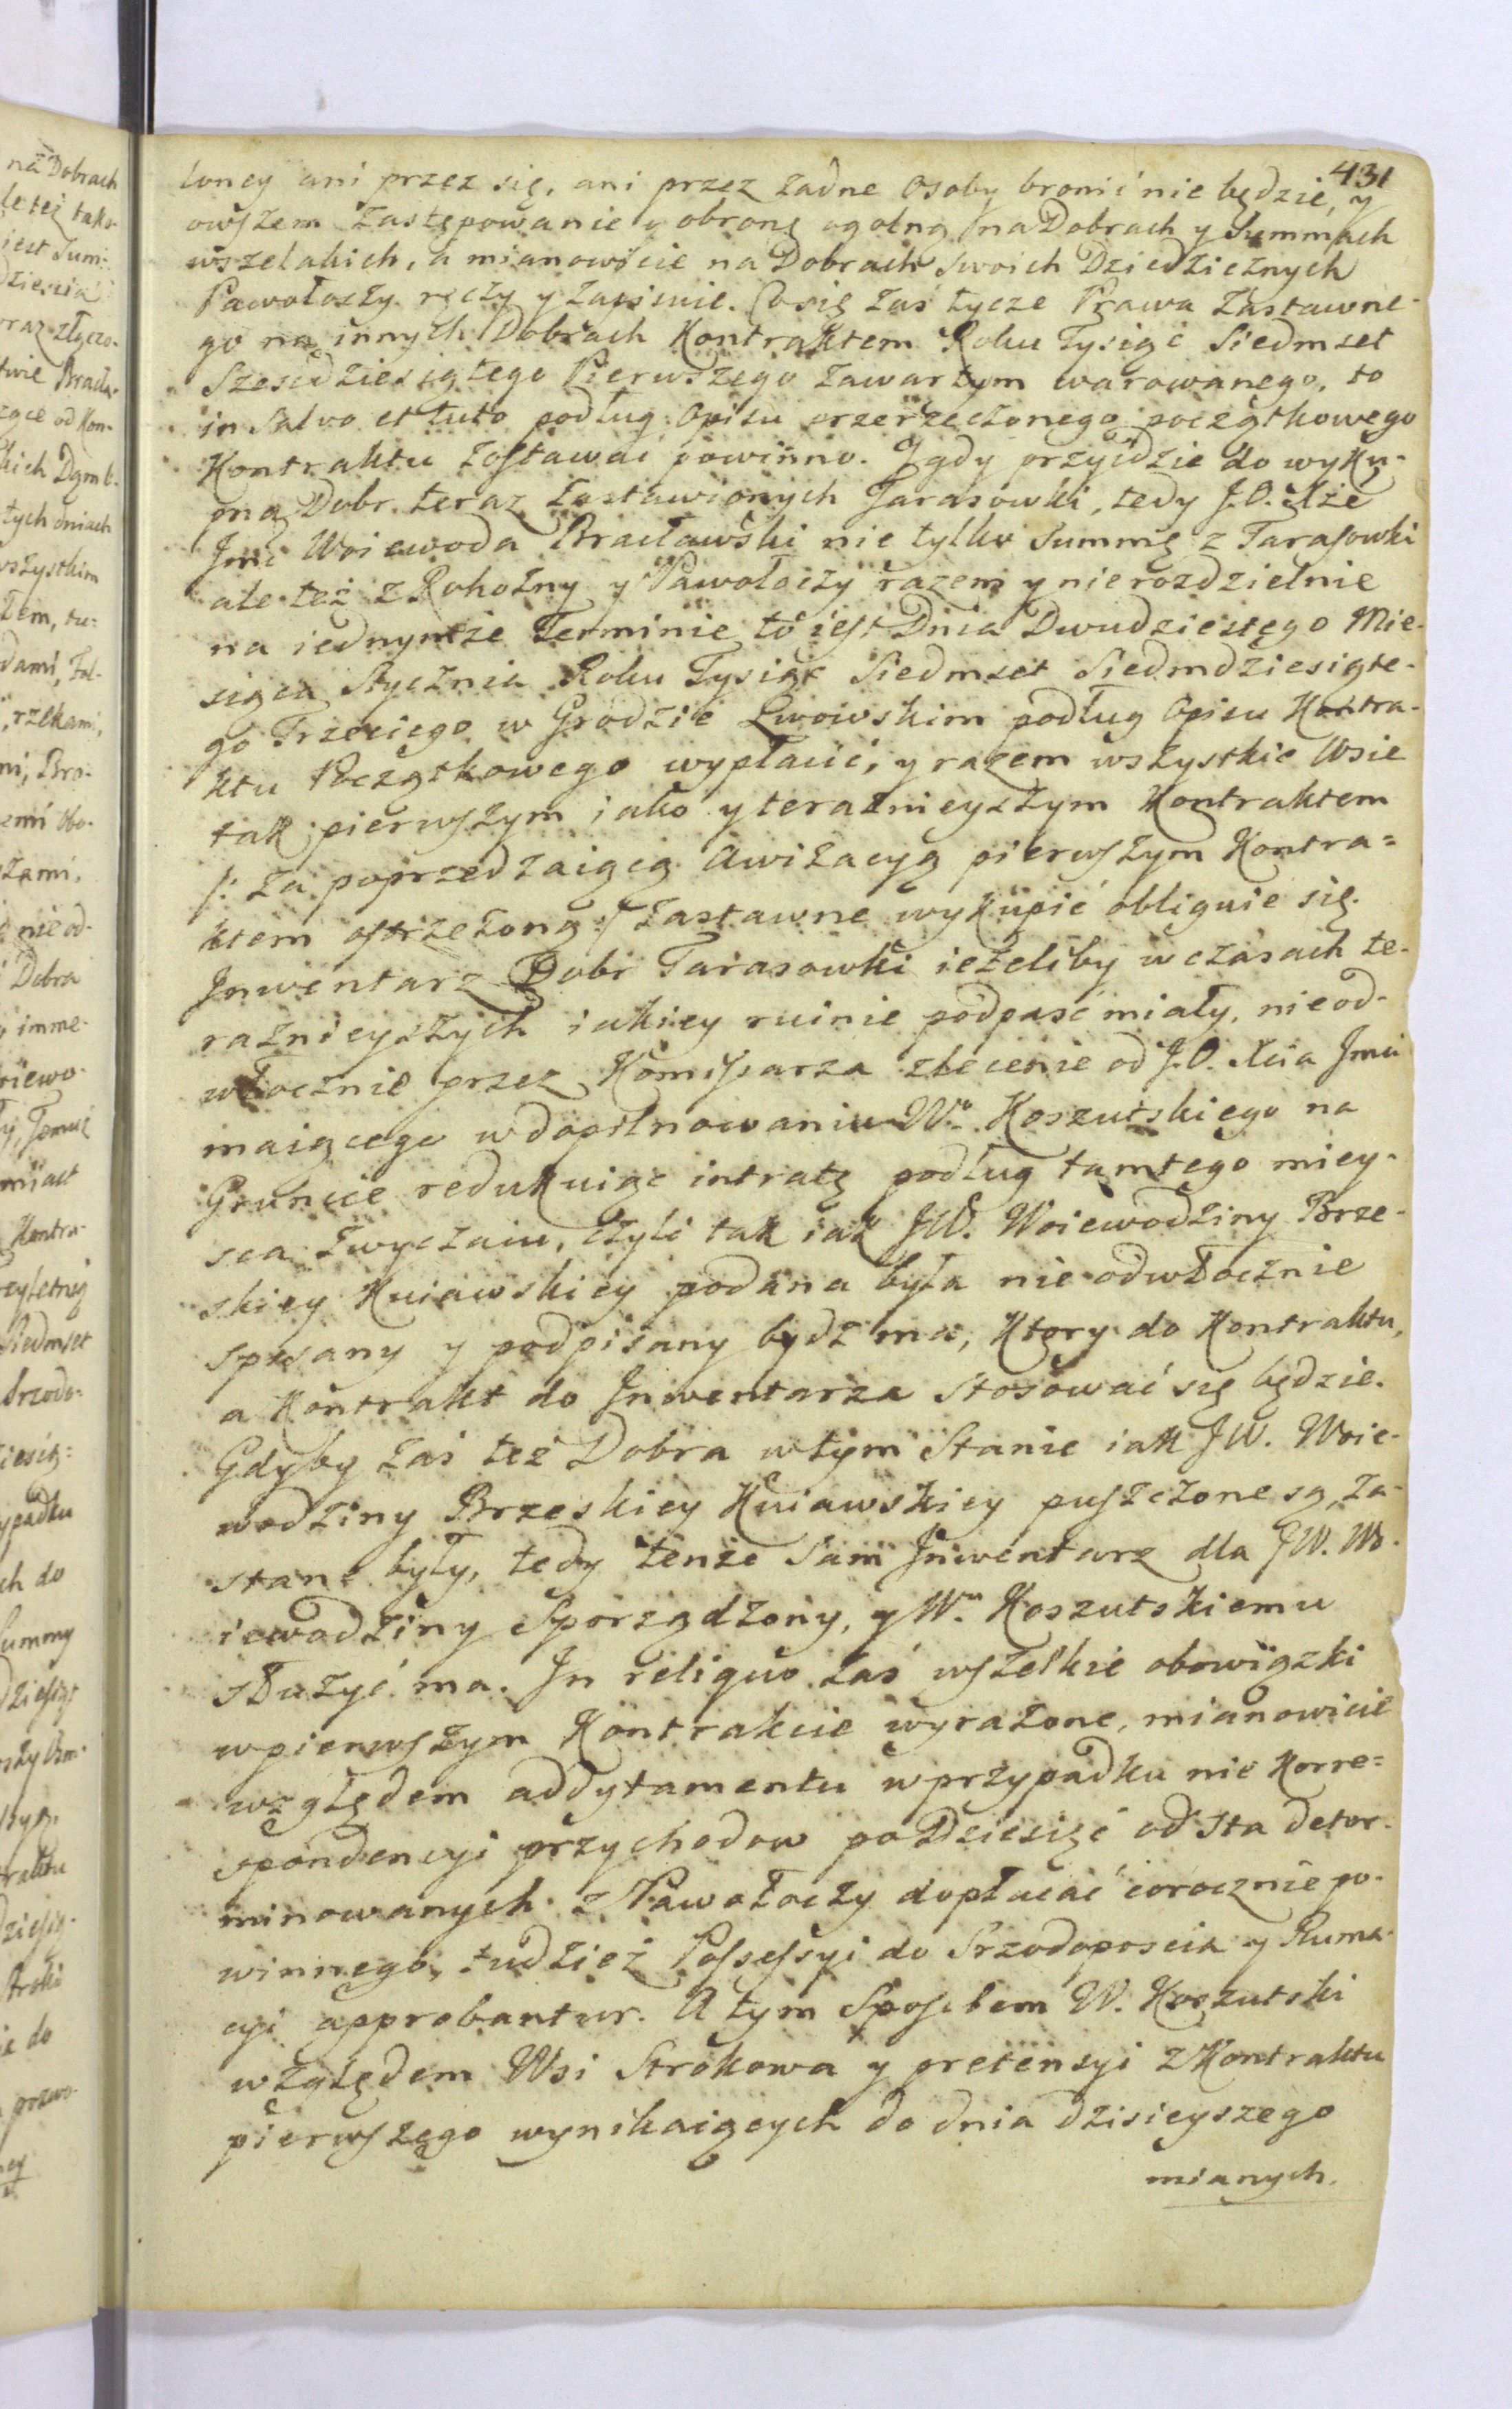 431
loney ani przez się, ani przez żadne Osoby bronić nie będzie, y
owszem zastępowanie y obronę ogolną na Dobrach y Summach
wszelakich, a mianowicie na Dobrach swoich Dziedzicznych
Pawołoczy ręczy y zapisuie. Co się zaś tycze Prawa zastawne-
go na innych Dobrach Kontraktem Roku Tysiąc Siedmset
Szescdziesiątego Pierwszego zawartym warowanego, to
in salvo et tuto podług Opisu przerzeczonego początkowego
Kontraktu zostawać powinno. I gdy przyidzie do wyku-
pna Dobr teraz zastawionych Tarasowki, tedy J.O. Xże
Jmć Woiewoda Bracławski nie tylko Summę z Tarasowki
ale też z Rohozny y Pawołoczy razem y nierozdzielnie
na iednymże Terminie to iest Dnia Dwudziestego Mie-
siąca Stycznia Roku Tysiąc Siedmset Siedmdziesiąte-
go Trzeciego w Grodzie Lwowskim podług Opisu Kontra-
ktu Początkowego wypłacić, y razem wszystkie Wsie
tak pierwszym iako y teraznieyszym Kontraktem
/: za poprzedzaiącą Awizacyą pierwszym Kontra=
ktem ostrzeżoną :/ zastawne wykupić obliguie się.
Jnwentarz Dobr Tarasowki ieżeliby w czasach te-
raznieyszych iakiey ruinie podpaść miały, nieod-
włocznie przez Komissarza zlecenie od J.O. Xcia Jmci
maiącego w dopilnowaniu Wo. Koszutskiego na
Gruncie redukuiąc intratę podług tamtego miey-
sca zwyczaiu, czyli tak iak JW. Woiewodziny Brze-
skiey Kuiawskiey podana była nieodwłocznie
spisany y podpisany bydź ma, ktory do Kontraktu,
a Kontrakt do Jnwentarza stosować się będzie.
Gdyby zaś też Dobra w tym Stanie iak JW. Woie-
wodziny Brzeskiey Kuiawskiey puszczone są, za-
stane były, tedy tenże sam Jnwentarz dla JW. Wo-
iewodziny Sporządzony, y Wu. Koszutskiemu
służyć ma. Jn reliquo zaś wszelkie obowiązki
w pierwszym Kontrakcie wyrażone, mianowicie
względem addytamentu w przypadku nie korre=
spondencyi przychodow po Dziesięć od sta deter-
minowanych z Pawołoczy dopłacać corocznie po-
winnego, tudzież Possessyi do Srzodoposcia y Ruma-
cyi approbantur. A tym Sposobem W. Koszutski
względem Wsi Strokowa y pretensyi z Kontraktu
pierwszego wynikaiących do dnia dzisieyszego
mianych.